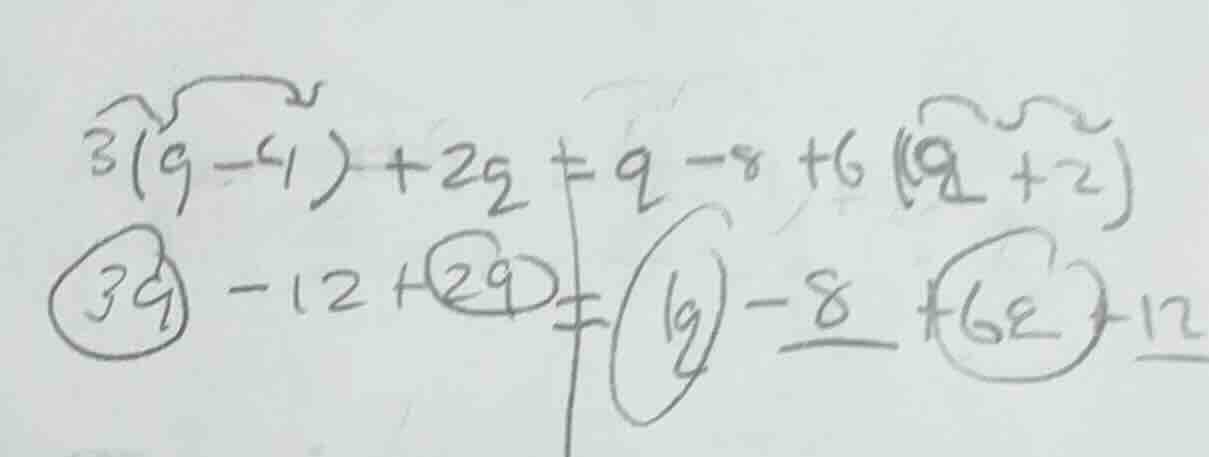 3(q-4)+2q=q-8+6(q+2)
3q-12+2q=1q-8+6q+12